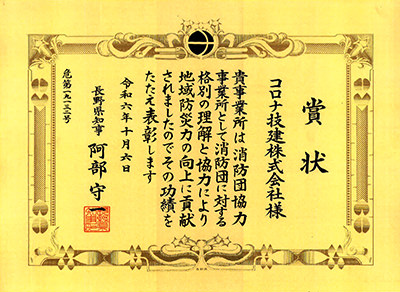 賞状
コロナ技建株式会社様
貴事業所は消防団協力
事業所として消防団に対する
格別の理解と協力により
地域防災力の向上に貢献
されましたのでその功績を
たたえ表彰します
令和六年十月六日
長野県知事 阿部守一